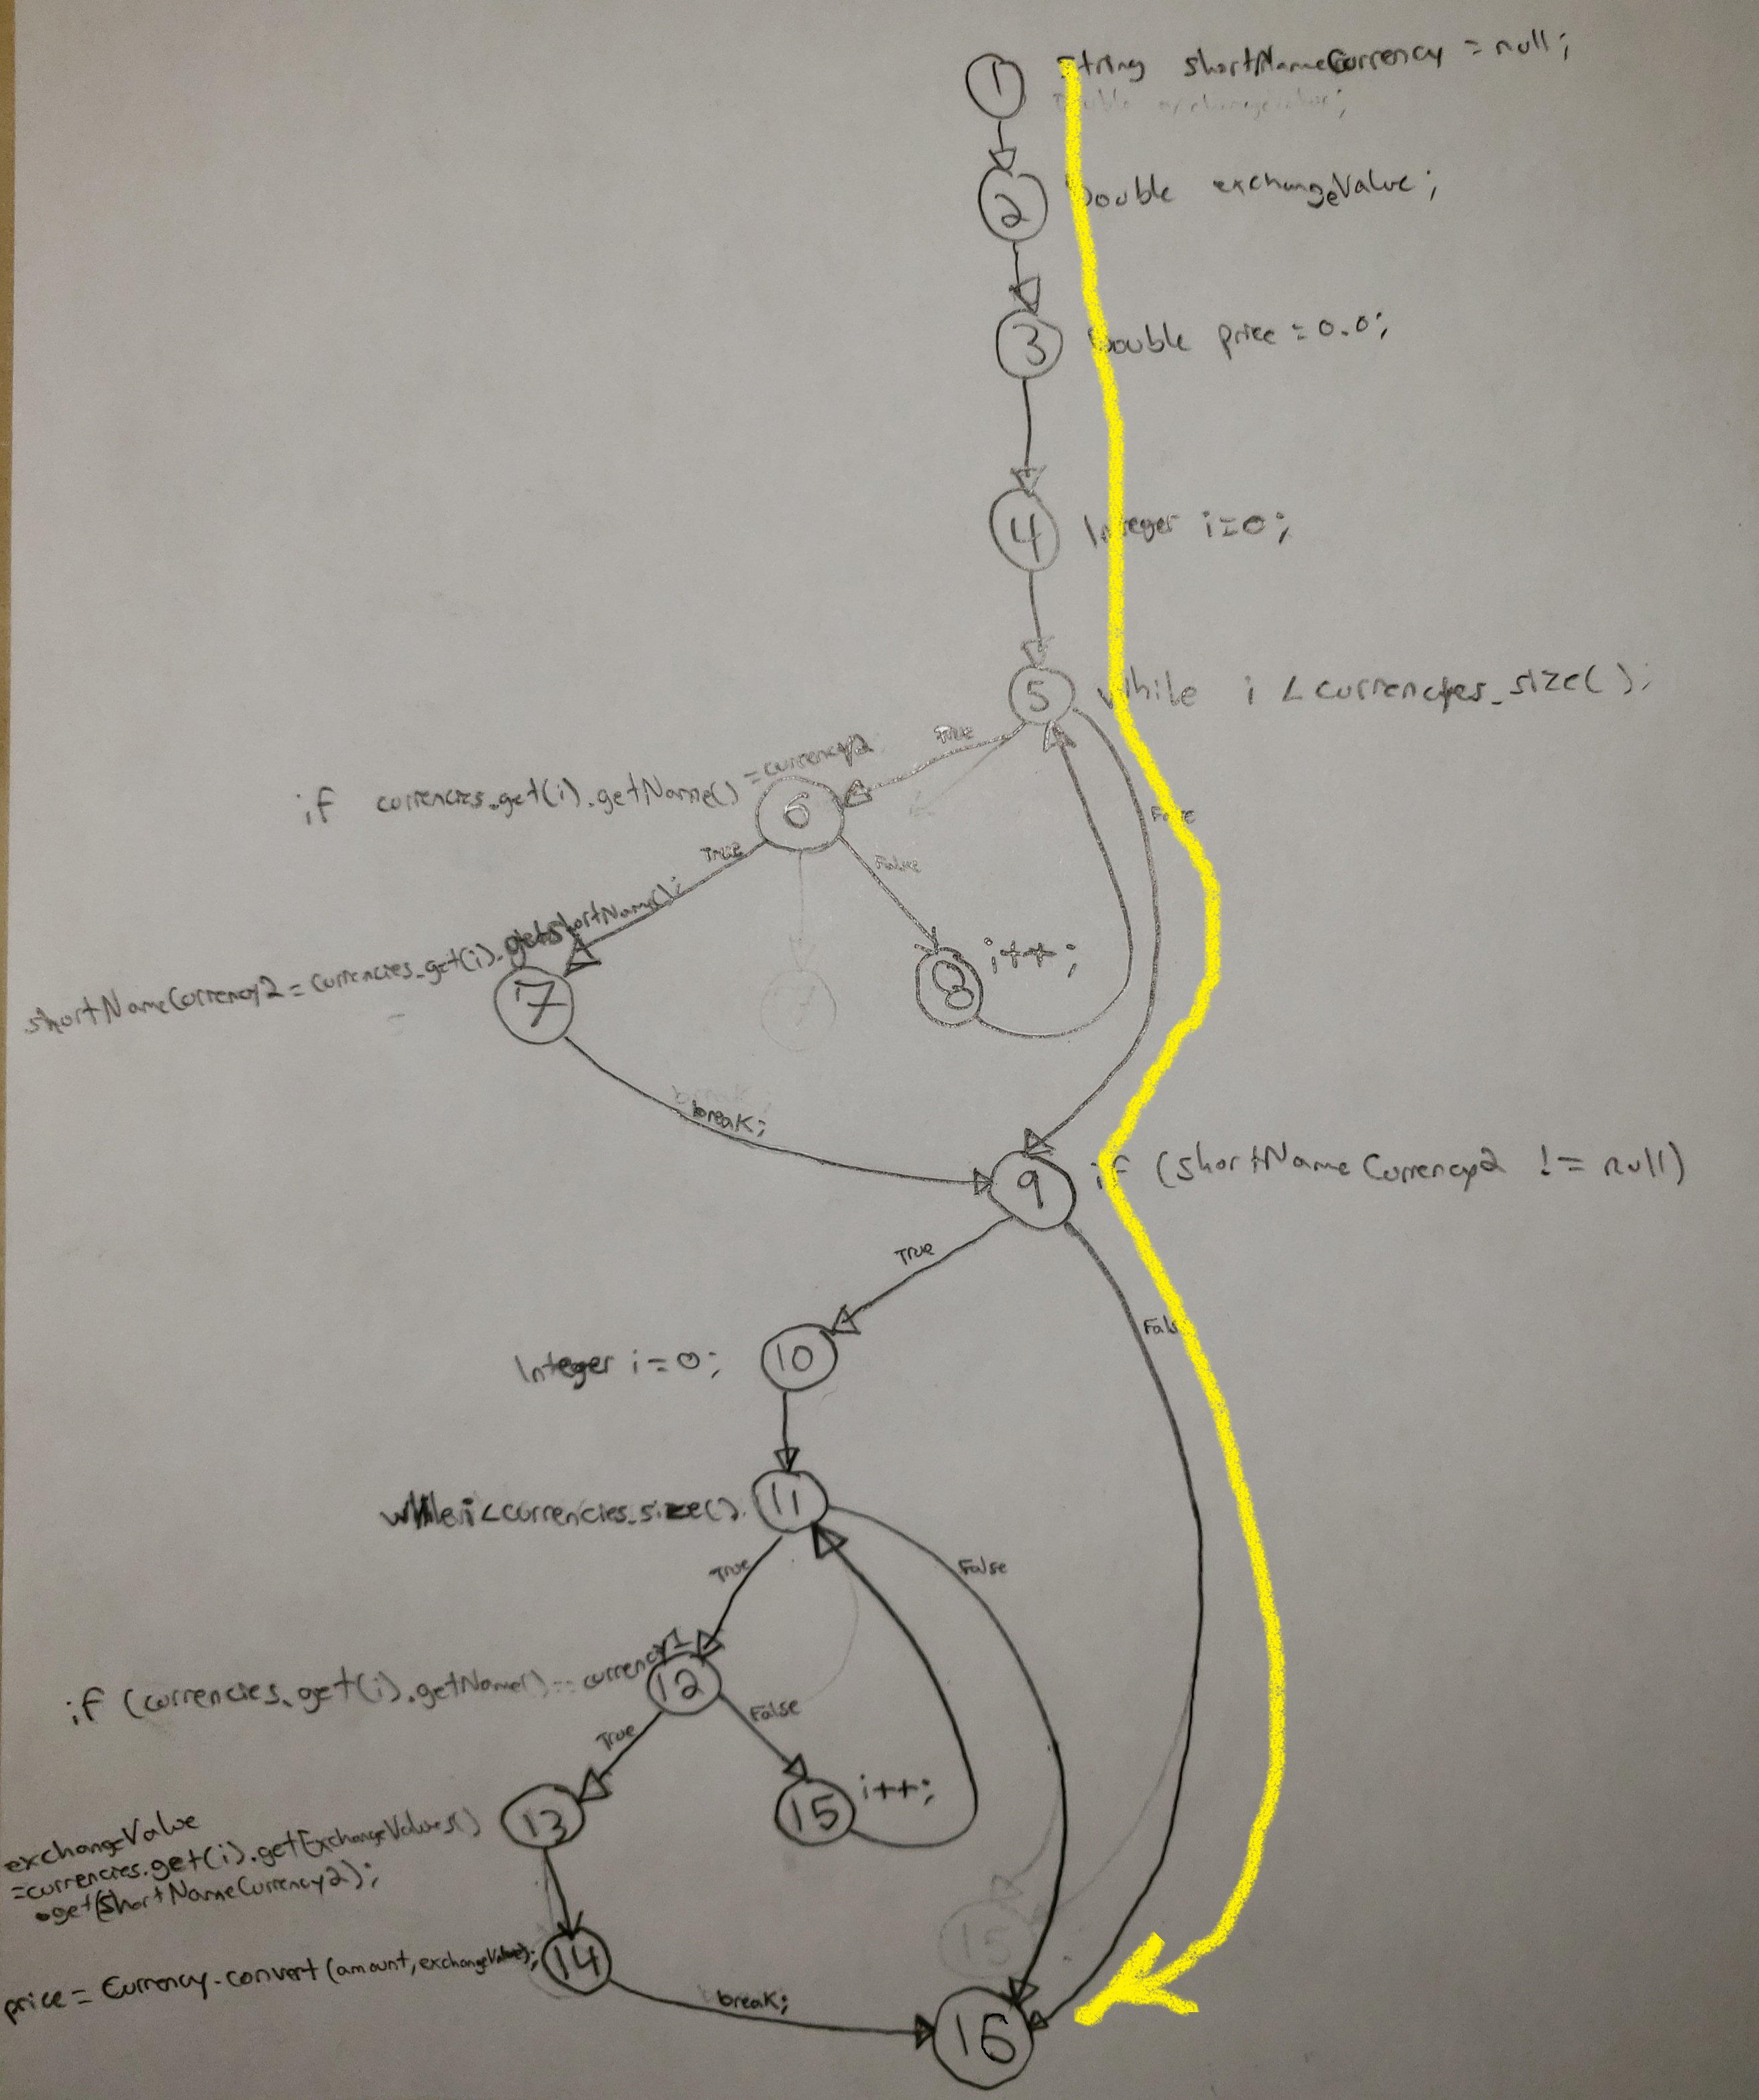 1 String shortNameCurrency = null;
Double exchangeValue;
2 Double exchangeValue;
3 Double price = 0.0;
4 Integer i=0;
5 While i < currencies.size();
True
False
if currencies.get(i).getName() = currency2
6
True
False
shortNameCurrency2 = currencies.get(i).getShortName();
7
8 i++;
7
break;
break;
9 if (shortNameCurrency2 != null)
True
False
Integer i=0; 10
while i < currencies.size(). 11
True
False
if (currencies.get(i).getName() == currency1
12
True
False
13
15 i++;
exchangeValue
=currencies.get(i).getExchangeValues()
.get(shortNameCurrency2);
15
price = Currency.convert(amount, exchangeValue); 14
break;
16